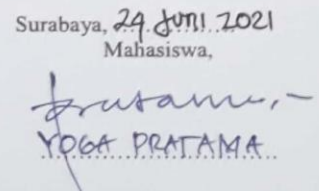 Surabaya, 24 Juni 2021
Mahasiswa,
Pratama,-
YOGA PRATAMA